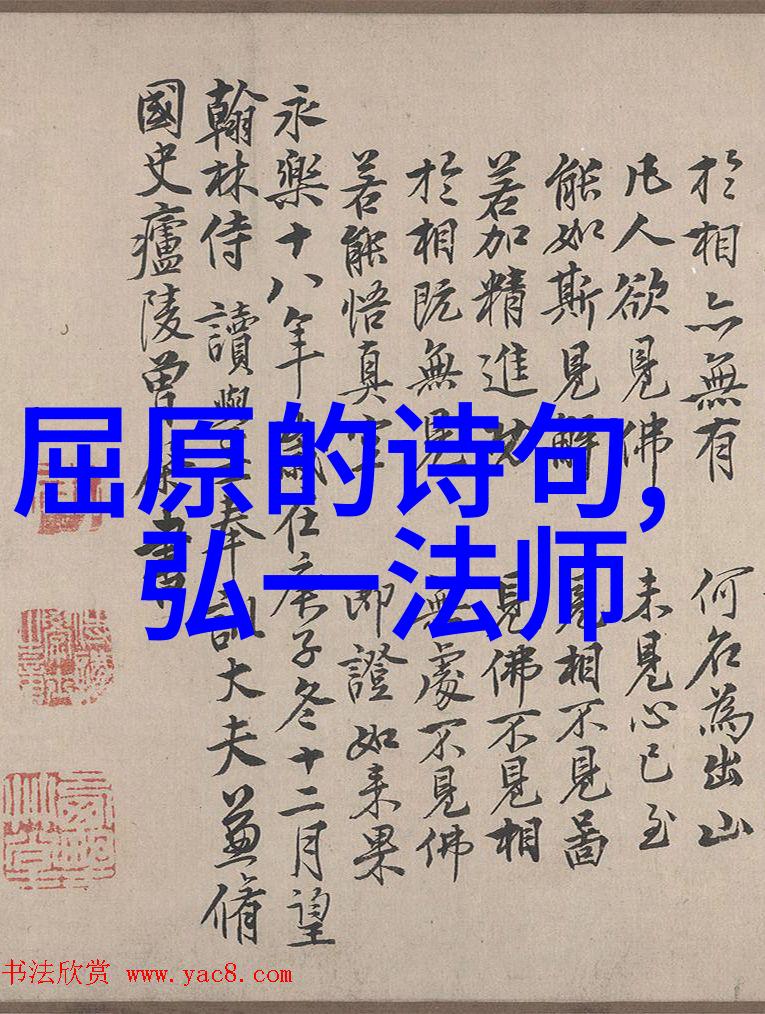 屈原的诗句,
弘一法师
於相亦無有 何名為出山
凡人欲見佛 未見心已至
能如斯見解 相不見啚
若加精進 見佛不見相
於相既無見 無處不見佛
若能悟真空 即證如来果
永樂十八年歲在庚子冬十二月望
翰林侍讀學士奉訓大夫兼脩
國史廬陵曾棨書
书法欣赏 www.yac8.com